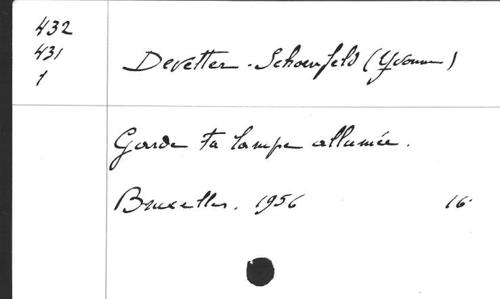 432
431
1
Devetter-Schoenfeld (Yvonne)
Garde ta lampe allumée.
Bruxelles. 1956 16°